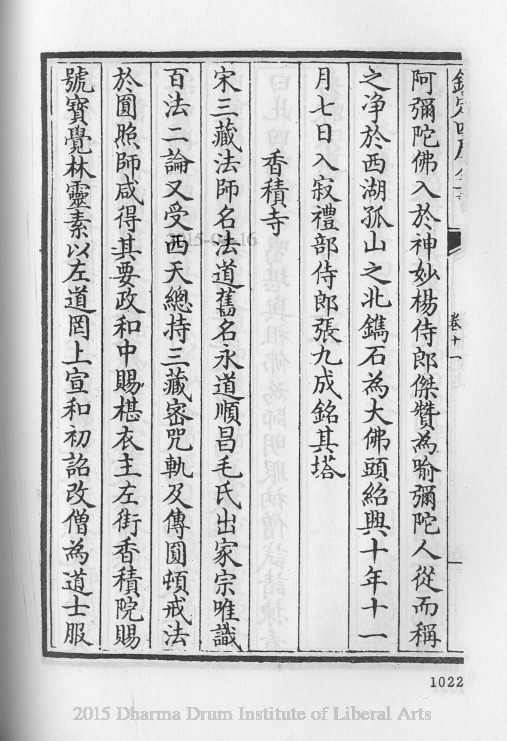 欽定四庫全書
卷十一
阿彌陀佛入於神妙楊侍郎傑贊為喻彌陀人從而稱
之净於西湖孤山之北鐫石為大佛頭紹興十年十一
月七日入寂禮部侍郎張九成銘其塔
香積寺
宋三藏法師名法道舊名永道順昌毛氏出家宗唯識
百法二論又受西天總持三藏密咒軌及傳圓頓戒法
於圓照師咸得其要政和中賜椹衣主左街香積院賜
號寶覺林靈素以左道罔上宣和初詔改僧為道士服
2015-04-16
1022
2015 Dharma Drum Institute of Liberal Arts